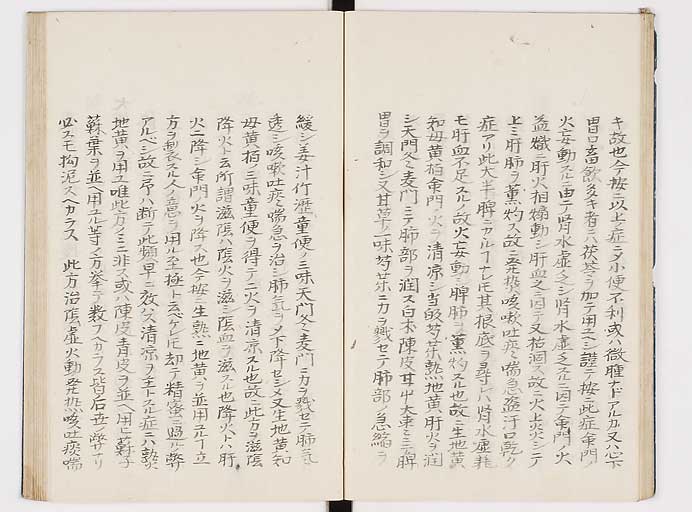 キ故也今按ニ以上ノ症ニシテ小便不利或ハ微腫ナドアルカ又ハ心下
胃口畜飲多キ者ニハ茯苓ヲ加テ用ユヘシ謹テ按ニ此症命門ノ
火妄動スルニ由テ腎水虚乏シ腎水虚乏スルニ因テ命門ノ火
益熾ニ肝火相煽動シ肝血之ニ因テ又枯涸ス故ニ火上炎シテ
上ミ肝肺ヲ薫灼ス故ニ発熱咳嗽吐痰喘急盗汗口乾ク
症アリ此大半脾ニカルヿナレモ其根底ヲ尋レハ腎水虚耗
モ肝血不足スルノ故火妄動シ脾肺ヲ薫灼スル也故ニ生地黄
知母黄柏命門ノ火ヲ清凉シ当皈芍薬熟地黄肝火ヲ潤
シ天門冬麦門ニテ肺部ヲ潤ス白朮陳皮甘艸大棗ニテ脾
胃ヲ調和シ又甘草ノ一味芍薬ニ力ヲ戮セテ肺部ノ急縮ヲ
緩シ姜汁竹瀝童便ノ三味天門冬麦門ニ力ヲ戮セテ肺気
透シ咳嗽吐痰喘急ヲ治シ肺気ヲシテ下降セシメ又生地黄知
母黄柏三味童便ヲ得テニ火ヲ清凉スル也故ニ此方ヲ滋陰
降火ト云所謂滋陰ハ陰火ヲ滋シ陰血ヲ滋スル也降火トハ肝
火ニ降シ命門火ヲ降ス也今按ニ生熟ニ地黄ヲ並用スルヿ立
方ヲ製スル人ノ意ヲ用ル至極ト云ベケレモ却テ精蜜ニ過ル弊
アルベシ故ニ予ハ断テ此煩早ニ效ハス清凉ヲ主トスル症ニハ乾
地黄ヲ用ユ唯此方ノミニ非ス或ハ陳皮青皮ヲ並ヘ用ヒ蘇子
蘇葉ヲ並ヘ用ユル等ノ方挙テ数フヘカラス皆后世ノ弊ナリ
必スモ拘泥スヘカラス　此方治陰虚火動発熱咳吐痰喘